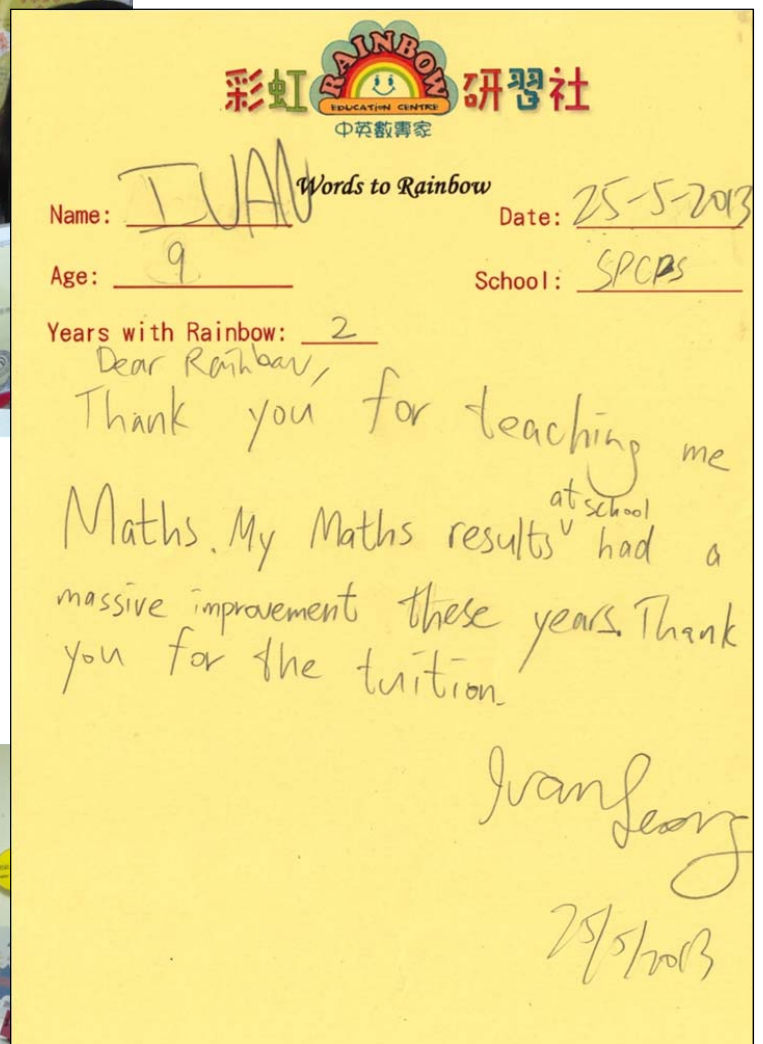 彩虹 RAINBOW 研習社
EDUCATION CENTRE
中英數專家
Words to Rainbow
Name: IVAN Date: 25-5-2013
Age: 9 School: SPCPS
Years with Rainbow: 2
Dear Rainbow,
Thank you for teaching me
at school
Maths. My Maths results ∨ had a
massive improvement these years. Thank
you for the tuition.
Ivan Leong
25/5/2013